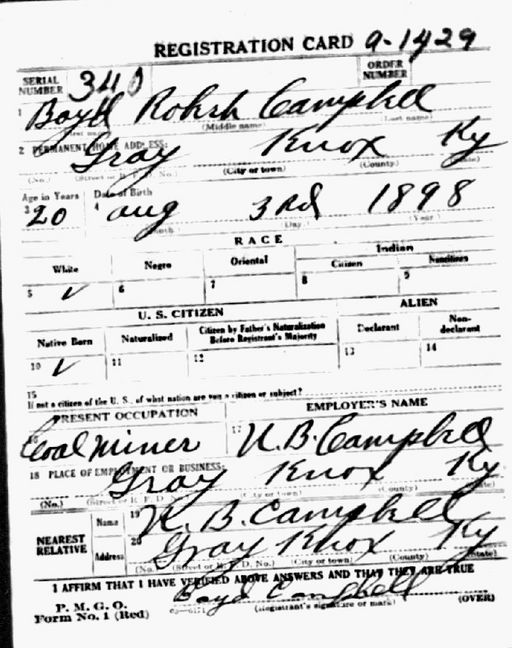 REGISTRATION CARD 9-1429
SERIAL NUMBER 340 ORDER NUMBER
1 Boyd Campbell
(First name) (Middle name) (Last name)
2 PERMANENT HOME ADDRESS:
Gray Knox Ky
(No.) (Street or R. F. D. No.) (City or town) (County) (State)
Age in Years Date of Birth
3 20 4 Aug 3rd 1898
(Month) (Day) (Year)
RACE
White Negro Oriental Indian
Citizen Noncitizen
5 ✓ 6 7 8 9
U. S. CITIZEN ALIEN
Native Born Naturalized Citizen by Father's Naturalization Before Registrant's Majority Declarant Non-declarant
10 ✓ 11 12 13 14
15
If not a citizen of the U. S., of what nation are you a citizen or subject?
PRESENT OCCUPATION EMPLOYER'S NAME
16 Coal Miner 17 B. Campbell
18 PLACE OF EMPLOYMENT OR BUSINESS:
Gray Knox Ky
(No.) (Street or R. F. D. No.) (City or town) (County) (State)
NEAREST RELATIVE
Name 19 B. Campbell
Address 20 Gray Knox Ky
(No.) (Street or R. F. D. No.) (City or town) (County) (State)
I AFFIRM THAT I HAVE VERIFIED ABOVE ANSWERS AND THAT THEY ARE TRUE
P. M. G. O.
Form No. 1 (Red) Boyd Campbell
(Registrant's signature or mark) (OVER)